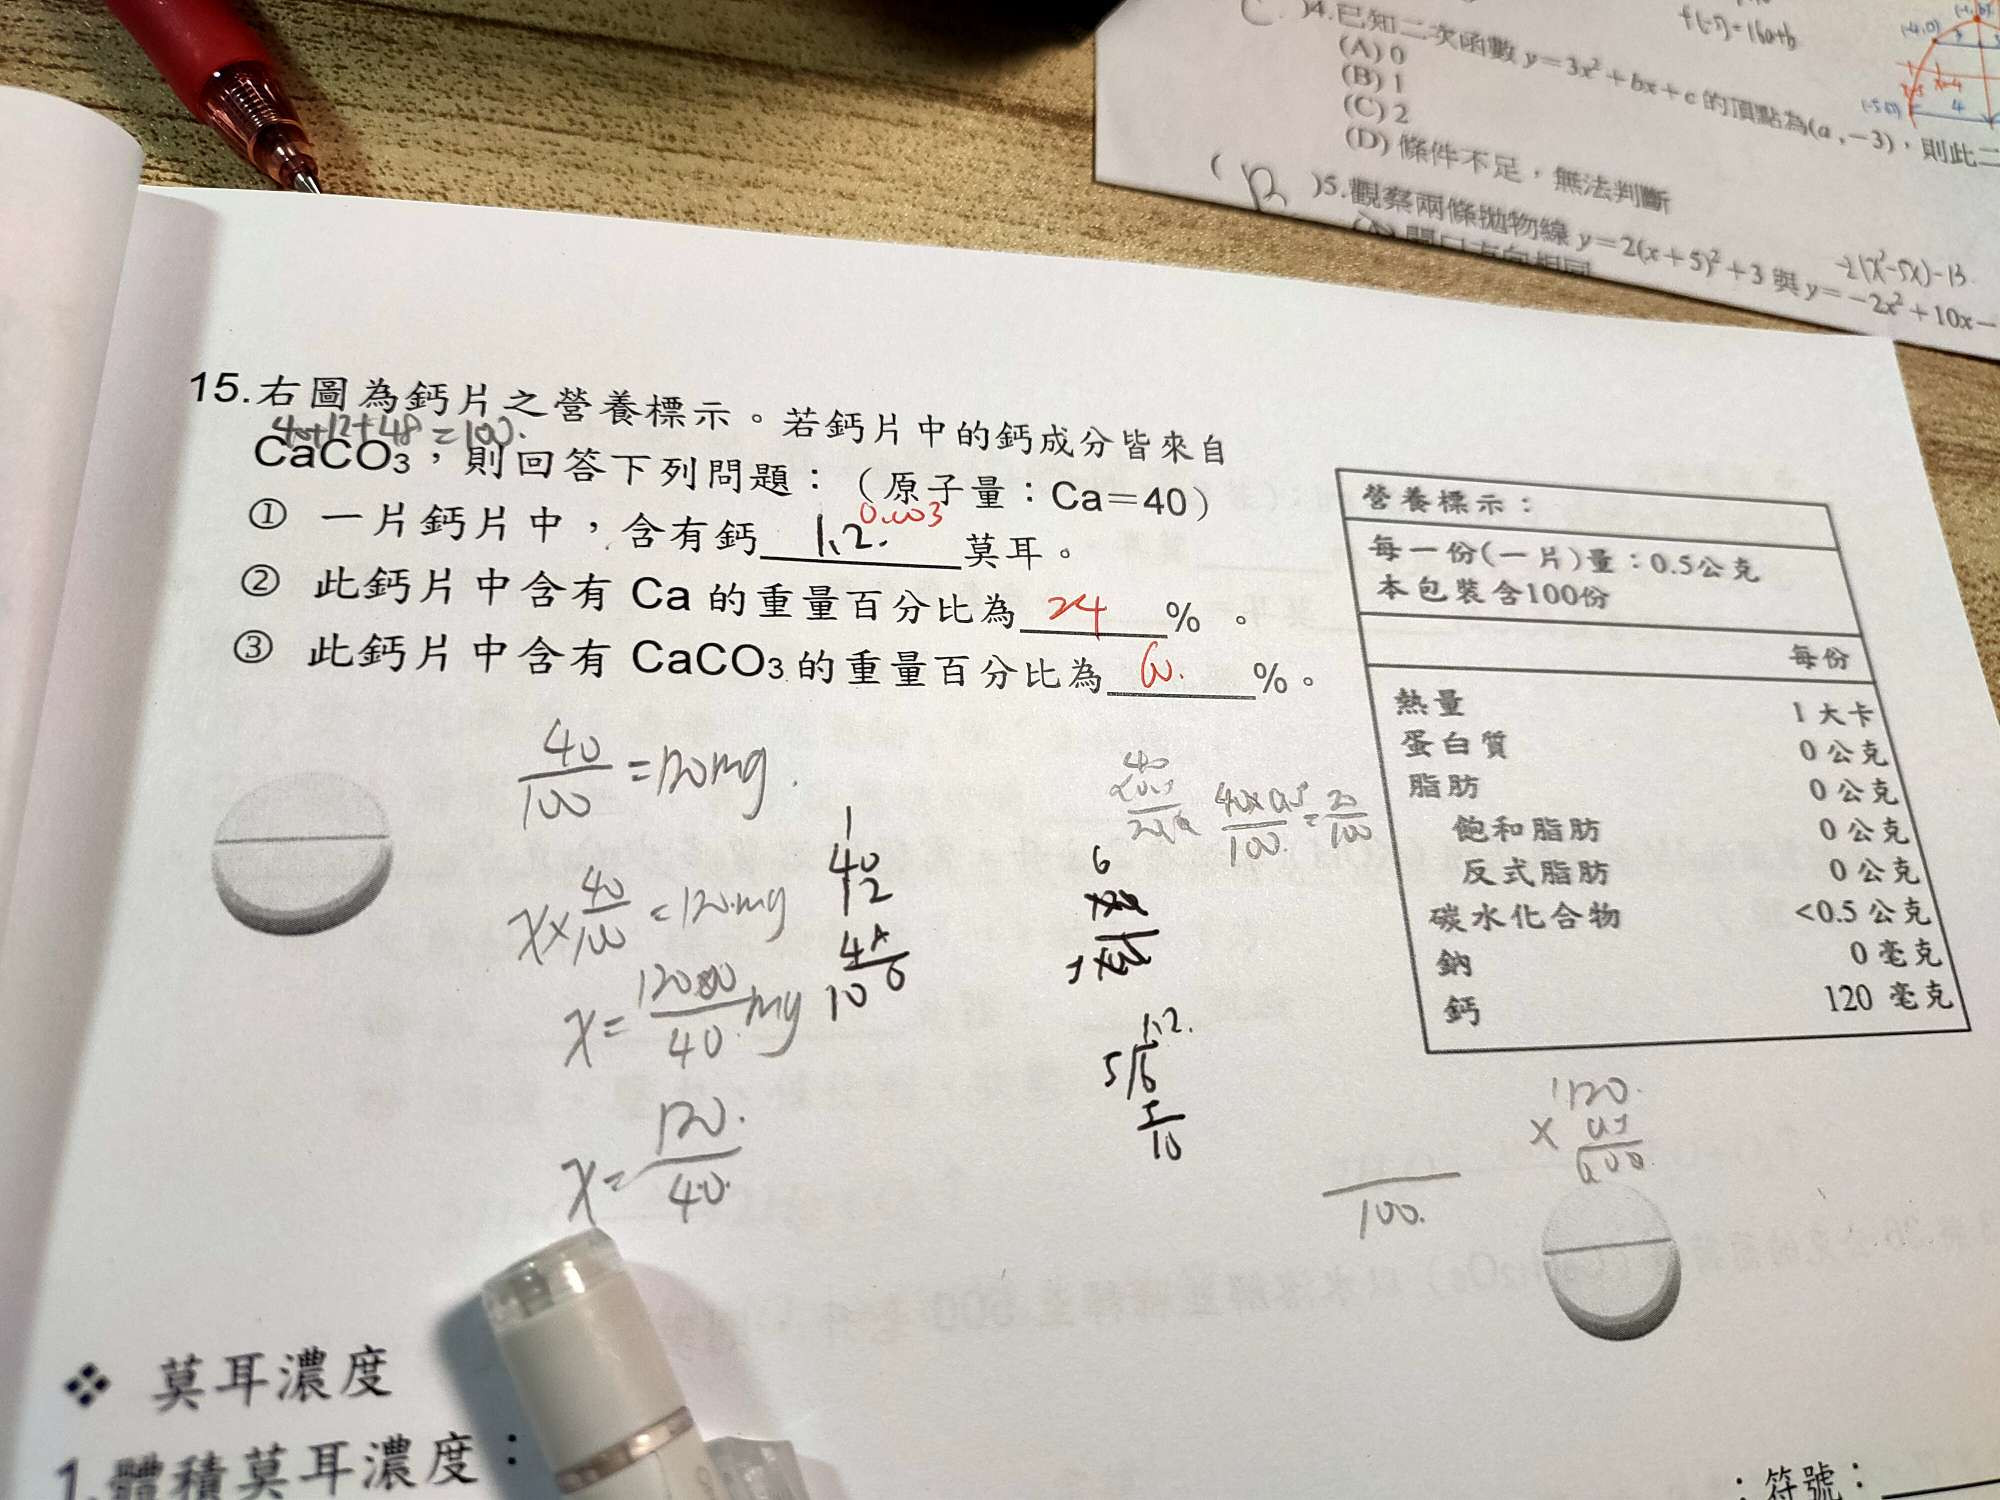 C )4.已知二次函數 y=3x²+bx+c 的頂點為(a,-3),則此二
(A) 0
(B) 1
(C) 2
(D) 條件不足,無法判斷
f(-7)=16a+b
(-4,0)
(-5,0)
4
( B )5.觀察兩條拋物線 y=2(x+5)²+3 與 y=-2x²+10x-
-2(x²-5x)-13
15.右圖為鈣片之營養標示。若鈣片中的鈣成分皆來自
40+12+48=100.
CaCO₃,則回答下列問題:(原子量:Ca=40)
0.003
① 一片鈣片中,含有鈣 1.2. 莫耳。
② 此鈣片中含有 Ca 的重量百分比為 24 % 。
③ 此鈣片中含有 CaCO₃ 的重量百分比為 60. %。
40/100 = 120mg.
x×40/100 = 120mg
x= 12000/40 mg
x= 120./40.
1
40
2
10
6
40×0.5/100. = 20/100
1.2.
5 6
5
10
營養標示:
每一份(一片)量:0.5公克
本包裝含100份
每份
熱量 1 大卡
蛋白質 0 公克
脂肪 0 公克
飽和脂肪 0 公克
反式脂肪 0 公克
碳水化合物 <0.5 公克
鈉 0 毫克
鈣 120 毫克
120.
× 0.5
600
100.
❖ 莫耳濃度
1.體積莫耳濃度:
:符號: